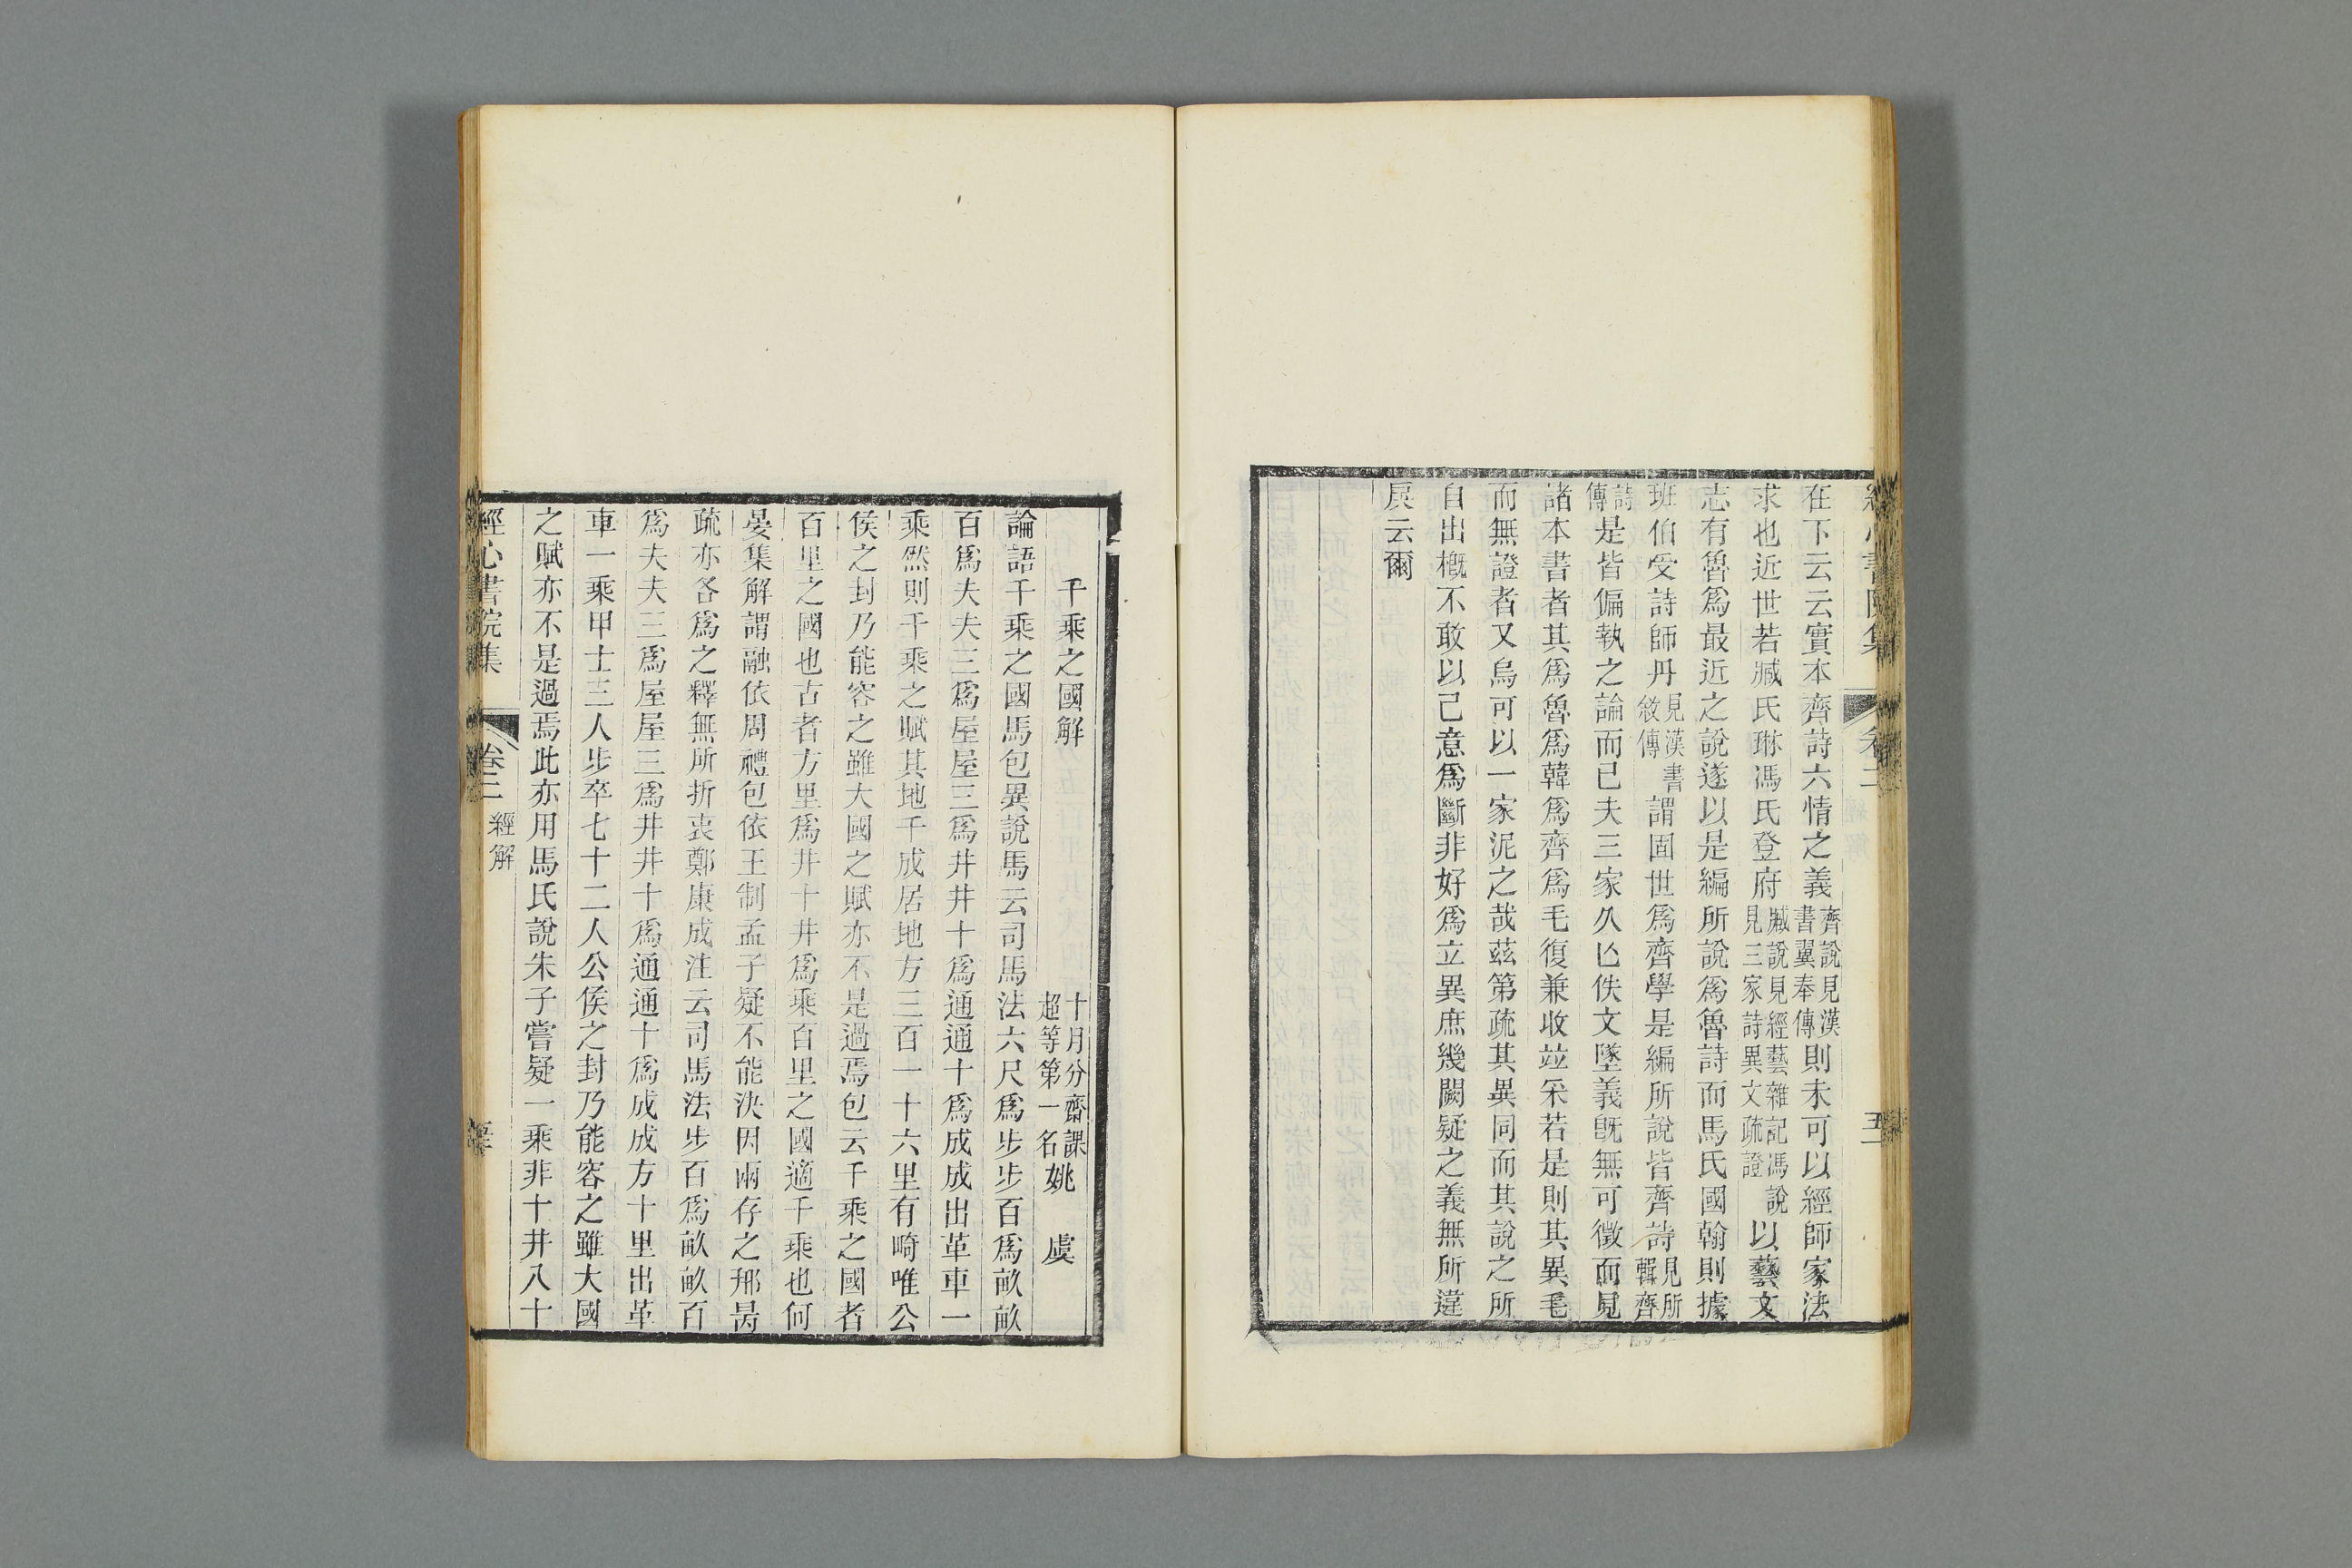 經心書院集 卷二 經解 五
在下云云實本齊詩六情之義齊說見漢書翼奉傳則未可以經師家法
求也近世若臧氏琳馮氏登府臧說見經藝雜記馮說見三家詩異文疏證以藝文
志有魯爲最近之說遂以是編所說爲魯詩而馬氏國翰則據
班伯受詩師丹見漢書敘傳謂固世爲齊學是編所說皆齊詩見所輯齊
詩傳是皆偏執之論而已夫三家久亾佚文墜義旣無可徵而見
諸本書者其爲魯爲韓爲齊爲毛復兼收竝采若是則其異毛
而無證者又烏可以一家泥之哉茲第疏其異同而其說之所
自出概不敢以己意爲斷非好爲立異庶幾闕疑之義無所違
戾云爾
千乘之國解 十月分齋課超等第一名姚 虞
論語千乘之國馬包異說馬云司馬法六尺爲步步百爲畝畝
百爲夫夫三爲屋屋三爲井井十爲通通十爲成成出革車一
乘然則千乘之賦其地千成居地方三百一十六里有畸唯公
侯之封乃能容之雖大國之賦亦不是過焉包云千乘之國者
百里之國也古者方里爲井十井爲乘百里之國適千乘也何
晏集解謂融依周禮包依王制孟子疑不能決因兩存之邢昺
疏亦各爲之釋無所折衷鄭康成注云司馬法步百爲畝畝百
爲夫夫三爲屋屋三爲井井十爲通通十爲成成方十里出革
車一乘甲士三人步卒七十二人公侯之封乃能容之雖大國
之賦亦不是過焉此亦用馬氏說朱子嘗疑一乘非十井八十
經心書院集 卷二 經解